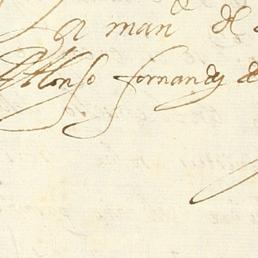 a man^do de
Alonso fernandez de